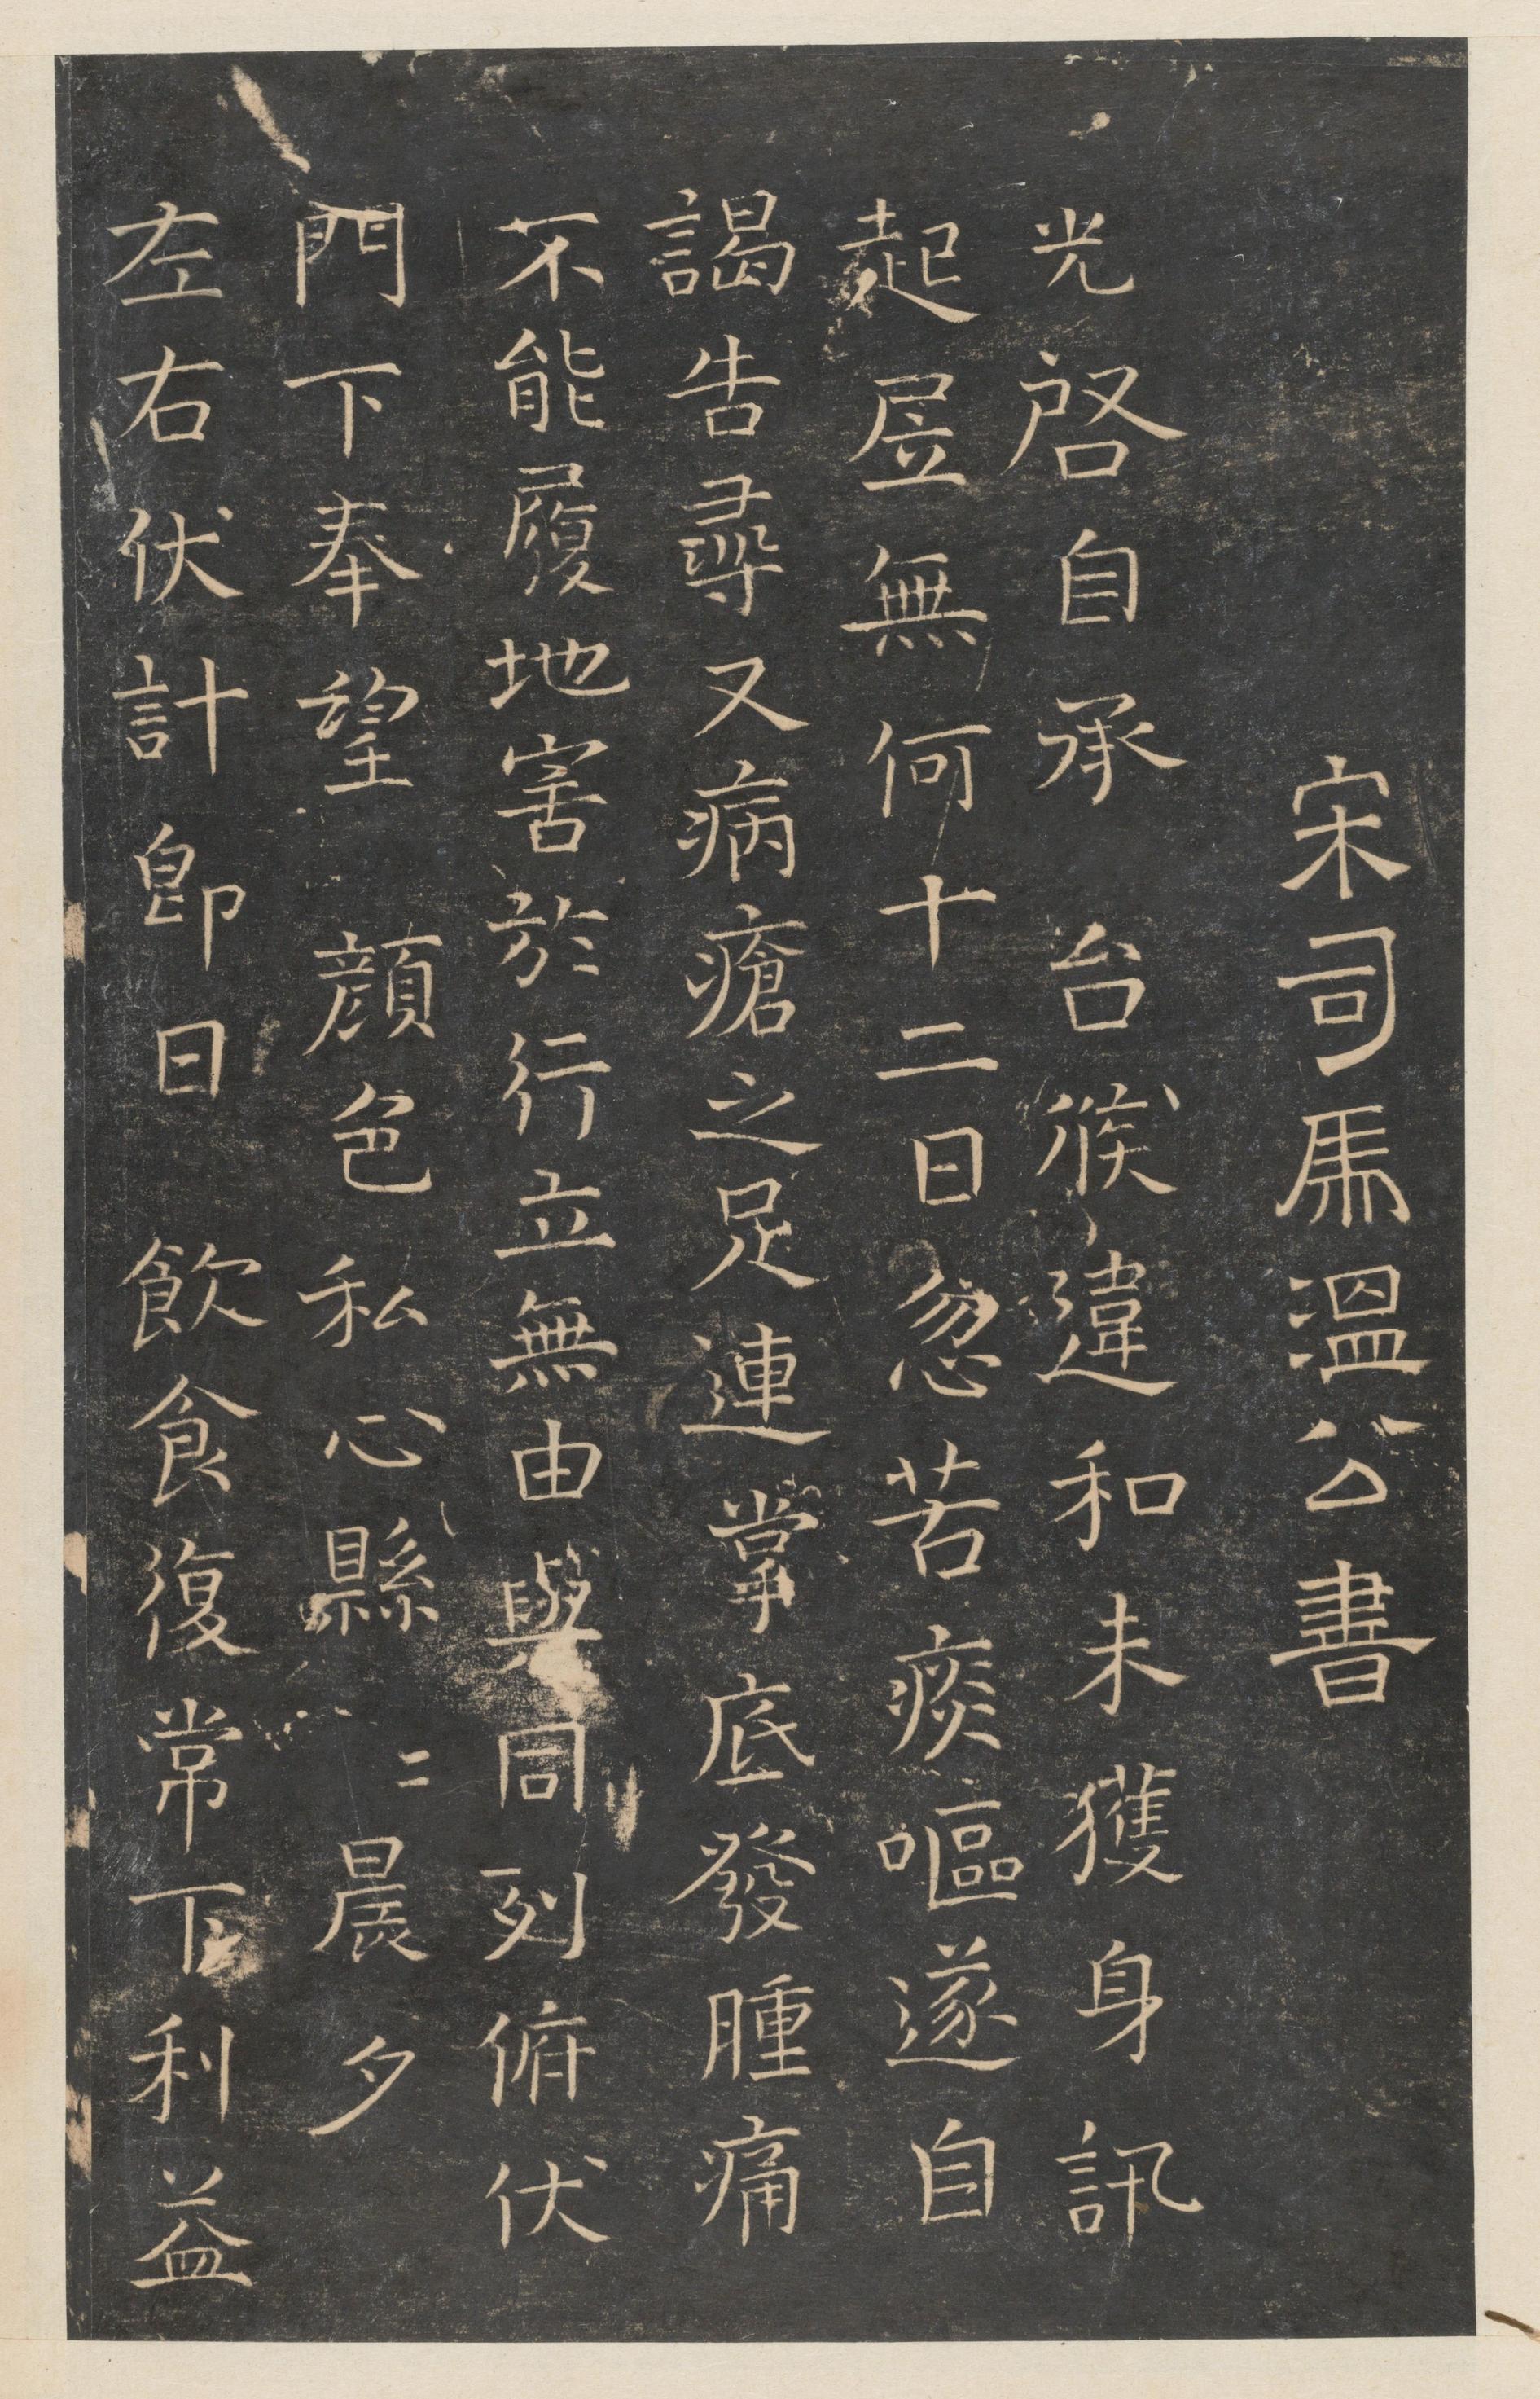 宋司馬溫公書
光啓自承 台候違和未獲身訊
起居無何十二日忽苦痰嘔遂自
謁告尋又病瘡之足連掌底發腫痛
不能履地害於行立無由與同列俯伏
門下奉望 顔色私心縣〻晨夕
左右伏計即日 飲食復常下利益